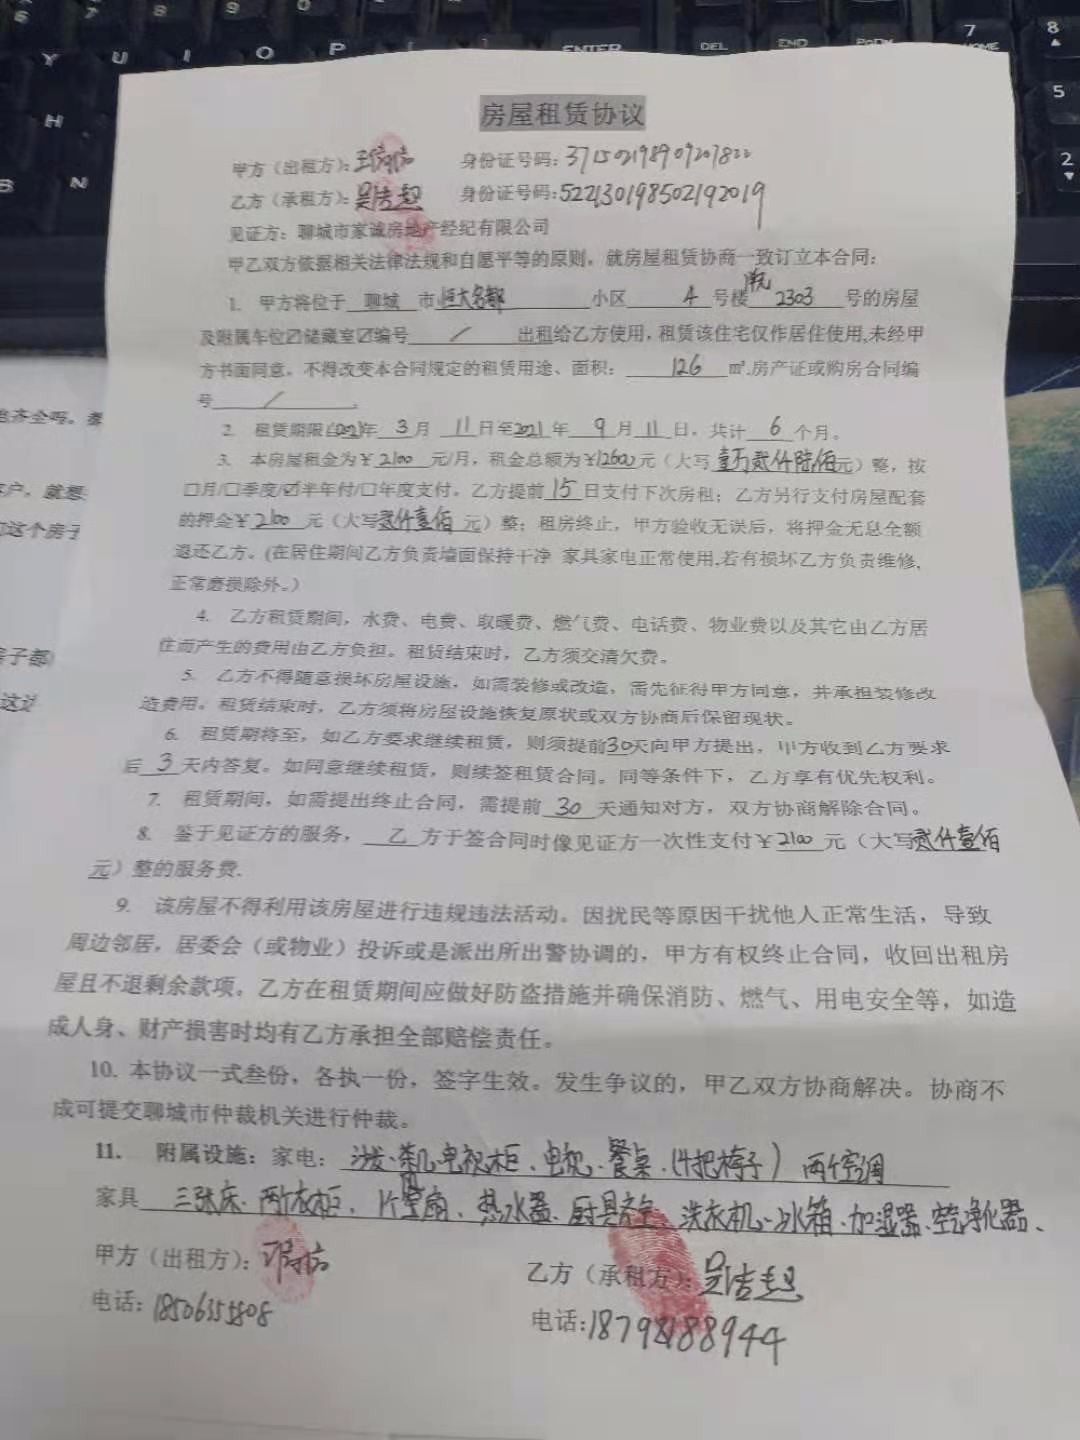 Y U I O P ENTER DEL END PgDn 7 HOME 8
H 5
B N 2
房屋租赁协议
甲方（出租方）： 身份证号码：
乙方（承租方）：吴洁超 身份证号码：522130198502192019
见证方：聊城市家诚房地产经纪有限公司
甲乙双方依据相关法律法规和自愿平等的原则，就房屋租赁协商一致订立本合同：
1. 甲方将位于 聊城 市 恒大名都 小区 4 号楼 2303 号的房屋
及附属车位☑储藏室☑编号 / 出租给乙方使用，租赁该住宅仅作居住使用,未经甲
方书面同意，不得改变本合同规定的租赁用途、面积： 126 ㎡.房产证或购房合同编
号 / .
2. 租赁期限自2021年 3 月 11 日至2021 年 9 月 11 日，共计 6 个月。
3. 本房屋租金为￥2100 元/月，租金总额为￥12600元（大写 壹万贰仟陆佰元）整，按
□月/□季度/☑半年付/□年度支付。乙方提前 15 日支付下次房租；乙方另行支付房屋配套
的押金￥2100 元（大写贰仟壹佰 元）整；租房终止，甲方验收无误后，将押金无息全额
退还乙方。（在居住期间乙方负责墙面保持干净 家具家电正常使用,若有损坏乙方负责维修,
正常磨损除外。）
4. 乙方租赁期间，水费、电费、取暖费、燃气费、电话费、物业费以及其它由乙方居
住而产生的费用由乙方负担。租赁结束时，乙方须交清欠费。
5. 乙方不得随意损坏房屋设施，如需装修或改造，需先征得甲方同意，并承担装修改
造费用。租赁结束时，乙方须将房屋设施恢复原状或双方协商后保留现状。
6. 租赁期将至，如乙方要求继续租赁，则须提前30天向甲方提出，甲方收到乙方要求
后 3 天内答复。如同意继续租赁，则续签租赁合同。同等条件下，乙方享有优先权利。
7. 租赁期间，如需提出终止合同，需提前 30 天通知对方，双方协商解除合同。
8. 鉴于见证方的服务， 乙 方于签合同时像见证方一次性支付￥2100 元（大写贰仟壹佰
元）整的服务费.
9. 该房屋不得利用该房屋进行违规违法活动。因扰民等原因干扰他人正常生活，导致
周边邻居，居委会（或物业）投诉或是派出所出警协调的，甲方有权终止合同，收回出租房
屋且不退剩余款项。乙方在租赁期间应做好防盗措施并确保消防、燃气、用电安全等，如造
成人身、财产损害时均有乙方承担全部赔偿责任。
10. 本协议一式叁份，各执一份，签字生效。发生争议的，甲乙双方协商解决。协商不
成可提交聊城市仲裁机关进行仲裁。
11. 附属设施：家电： 沙发、茶几、电视柜、电视、餐桌、（4把椅子） 两个空调
家具 三张床、两个衣柜、 热水器、厨具齐全、洗衣机、冰箱、加湿器、空气净化器、
甲方（出租方）： 乙方（承租方）：吴洁超
电话： 电话：18798188944